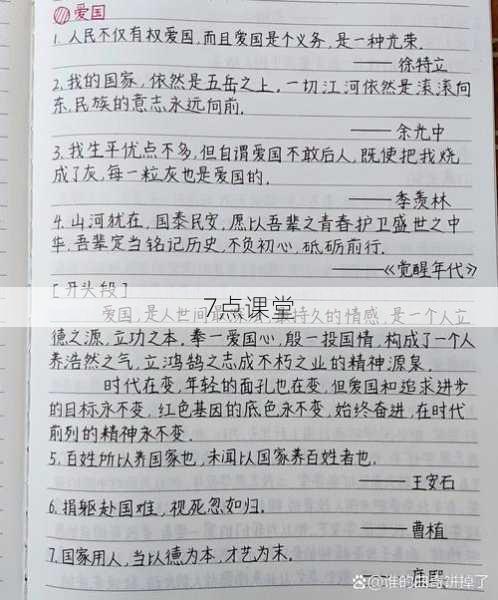 爱国
1. 人民不仅有权爱国,而且爱国是个义务,是一种光荣.
——徐特立
2.我的国家,依然是五岳之上,一切江河依然是滚滚向
东,民族的意志永远向前.
——余光中
3.我生平优点不多,但自谓爱国不敢后人,既使把我烧
成了灰,每一粒灰也是爱国的.
——季羡林
4.山河犹在,国泰民安,愿以吾辈之青春护卫盛世之中
华.吾辈定当铭记历史,不负初心,砥砺前行.
——《觉醒年代》
[开头段]
7点课堂
爱国,是人世间最持久的情感,是一个人立
德之源,立功之本,奉一爱国心,殷一投国情,构成了一个人
养浩然之气,立鸿鹄之志成不朽之业的精神源泉.
时代在变,年轻的面孔也在变,但爱国和追求进步
的目标永不变,红色基因的底色永不变,始终奋进,在时代
前列的精神永不变.
5.百姓所以养国家也,未闻以国家养百姓者也.
——王安石
6.捐躯赴国难,视死忽如归.
——曹植
7.国家用人,当以德为本,才艺为末.
——康熙
@谁的曲奇饼掉了